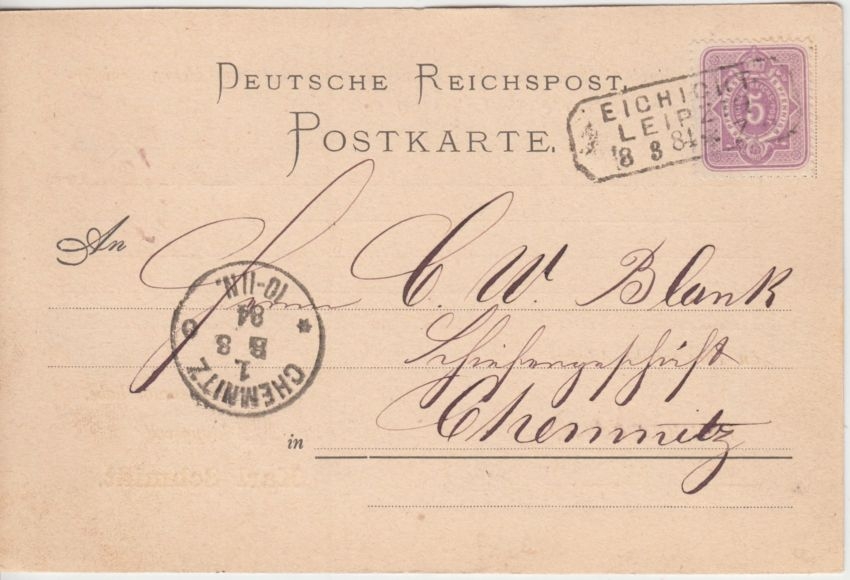 DEUTSCHE REICHSPOST.
POSTKARTE.
EICHICHT
LEIPZ
8 8 84
5
An
Herrn C. W. Blank
Schiefergeschäft
in Chemnitz
CHEMNITZ
1
B 8
84
10-11N.
Karl Schmidt.